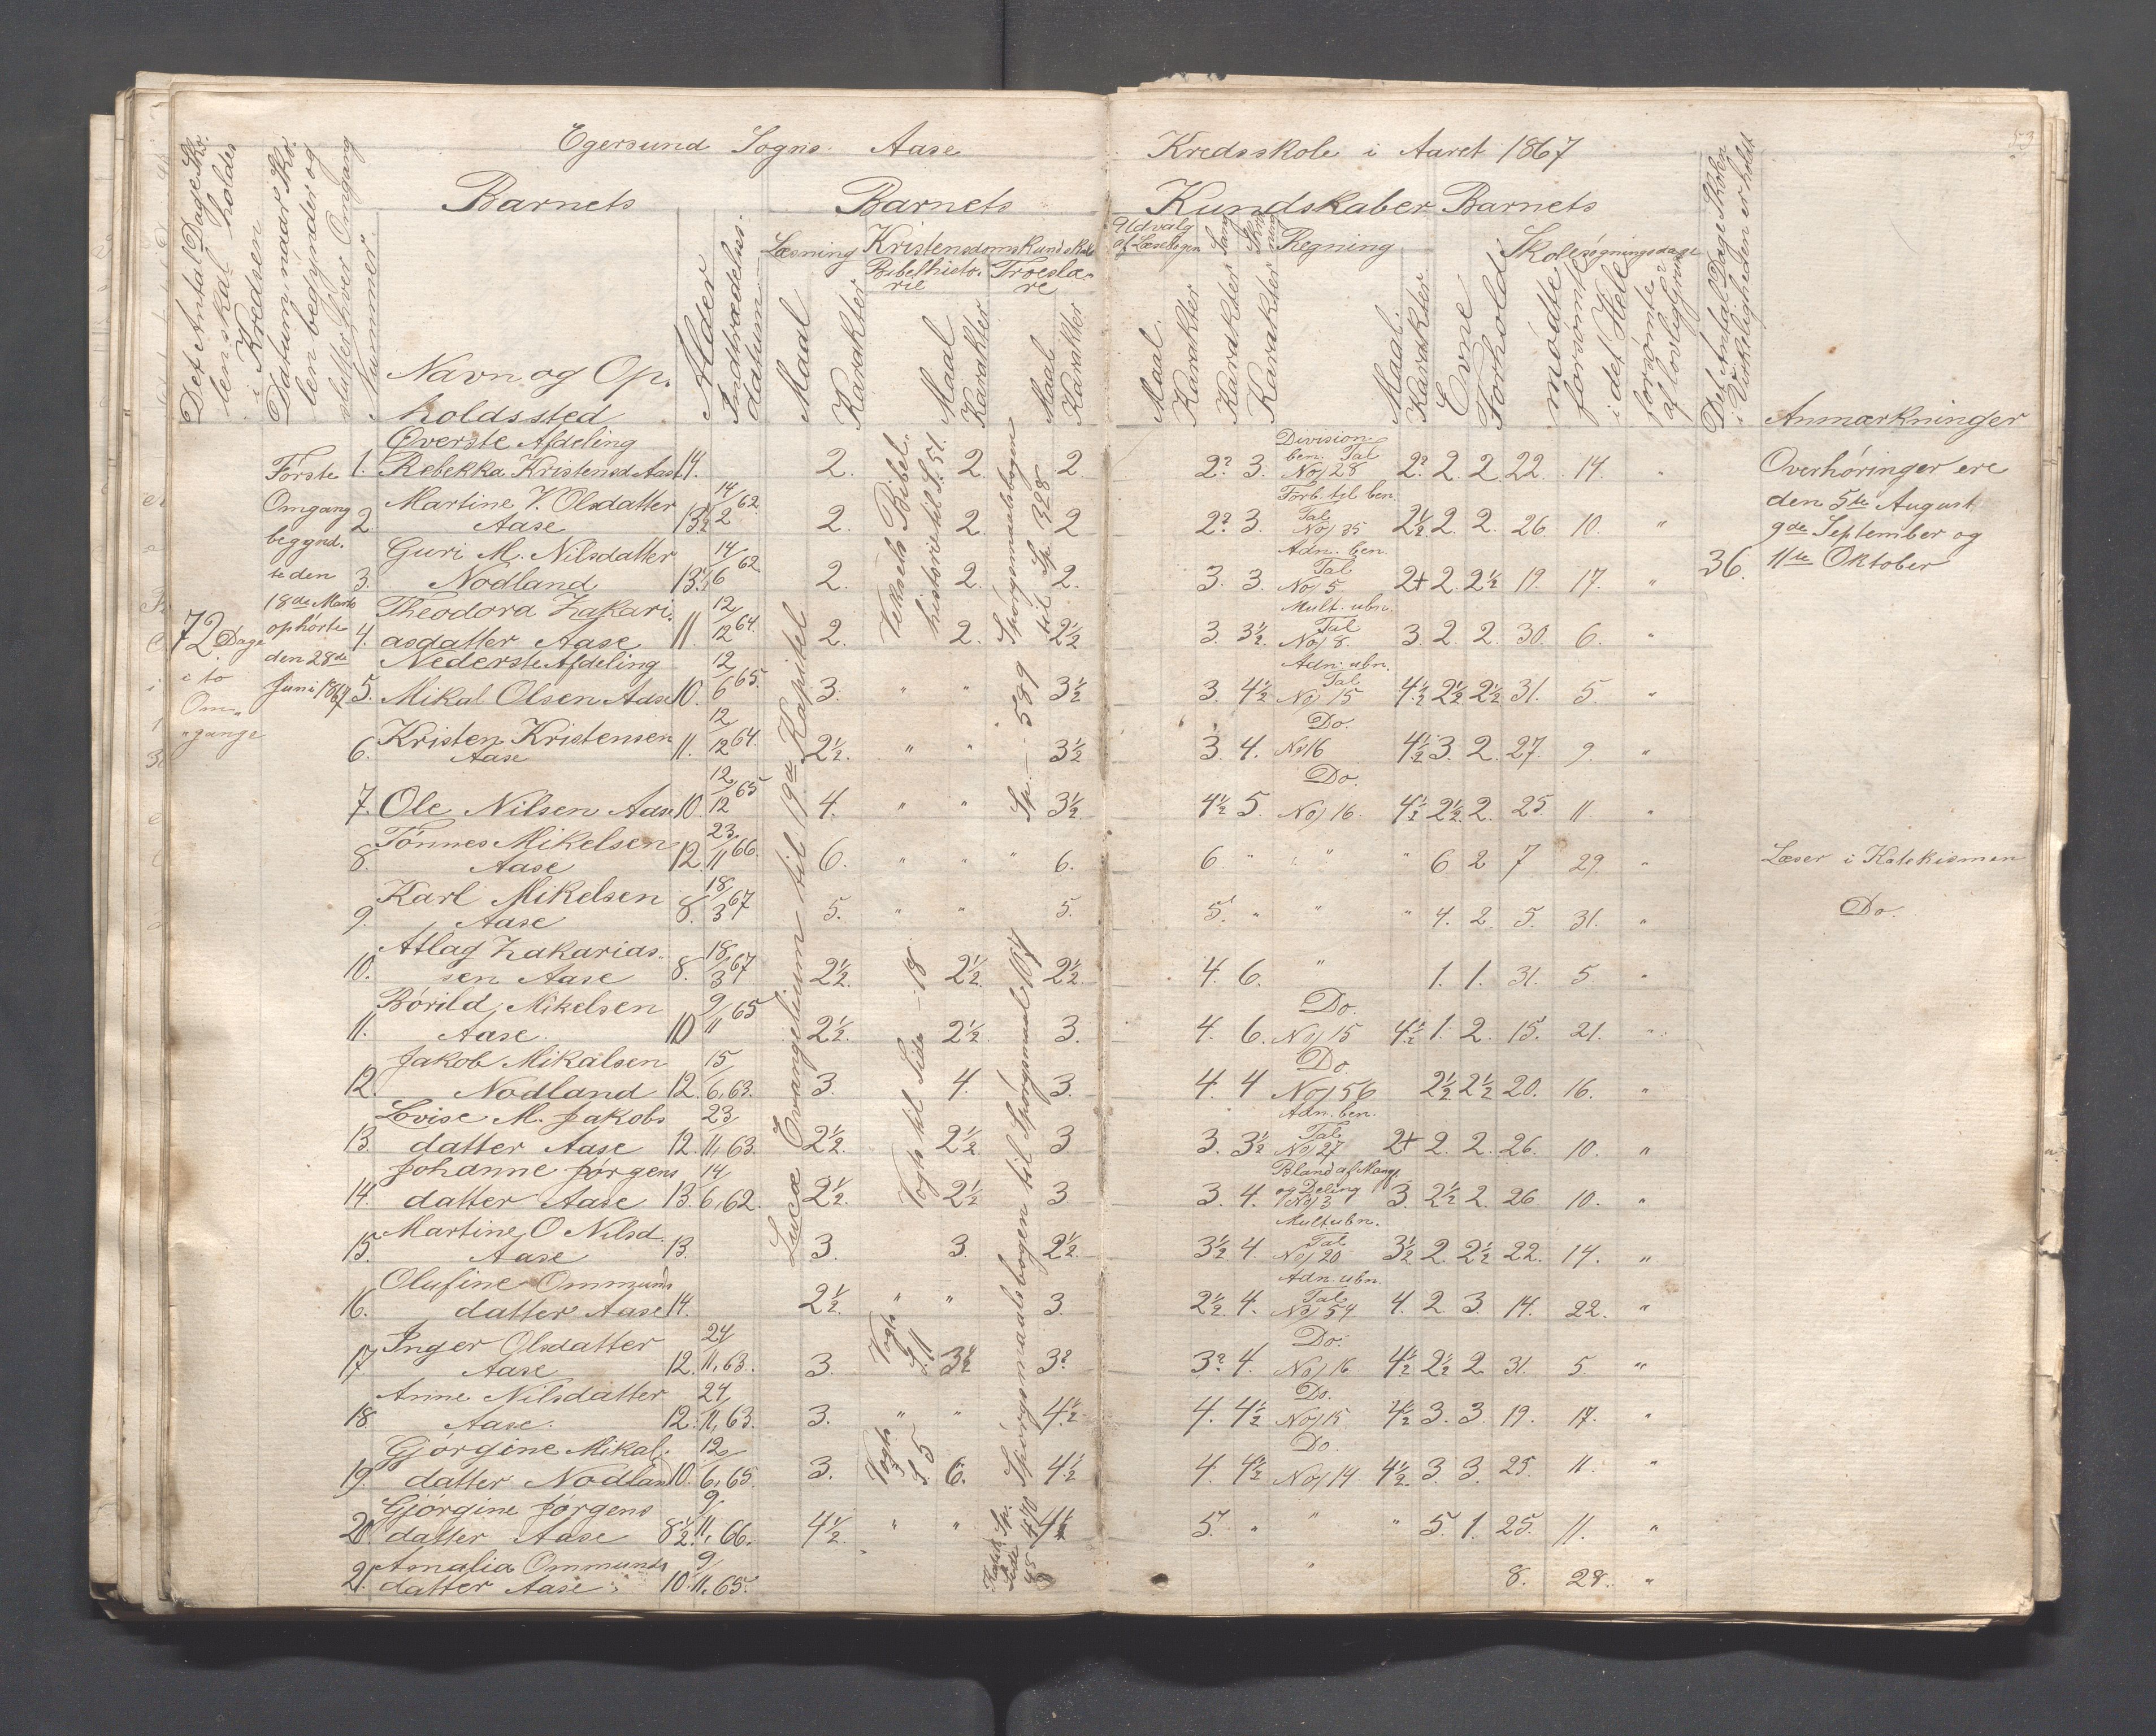 53
Egersund Sogns Aase Kredsskole i Aaret 1867
Det Antal Dage Skolen skal holdes i Kredsen
Datum, naar Skolen begynder og slutter hver Omgang
Nummer.
Barnets
Navn og Opholdssted
Alder
Indtrædelsesdatum
Barnets Kundskaber
Læsning
Maal
Karakter
Kristendomskundskab
Bibelhistorie
Maal
Karakter
Troeslære
Maal
Karakter
Udvalg af Læsebogen
Maal.
Karakter
Sang
Karakter
Skrivning
Karakter
Regning
Maal.
Karakter
Barnets
Evne
Forhold
Skolesøgningsdage
mødte
forsømte i det Hele
forsømte af lovlig Grund
Det Antal Dage Skolen i Virkeligheden er holdt
Anmærkninger
72 Dage i to Omgange
Første Omgang begyndte den 18de Marts ophørte den 28de Juni 1867
Lucæ Evangelium til 19de Kapitel
36.
Overhøringer ere
den 5te August
9de September og
11te Oktober
Øverste Afdeling
1. Rebekka Kristensd Aase 14. 2. 2. 2 2? 3. Division ben. Tal No 28 2? 2. 2. 22. 14. "
2. Martine V. Olsdatter Aase 13½ 14/2 62 2. 2. 2 2? 3. Forb. til ben. Tal No 35 2½ 2. 2. 26 10. "
3. Guri M. Nilsdatter Nodland 13½ 14/6 62 2. 2. 2. 3. 3. Adn. ben. Tal No 5 2+ 2. 2½ 19. 17. "
4. Theodora Zakariasdatter Aase 11. 12/12 64. 2. 2. 2½ 3. 3½ Mult. ubn. Tal No 8. 3. 2. 2. 30. 6. "
Nederste Afdeling
5. Mikal Olsen Aase 10. 12/6 65. 3. " " 3½ 3. 4½ Adn. ubn. Tal No 15 4½ 2½ 2½ 31. 5 "
6. Kristen Kristensen Aase 11. 12/12 64. 2½. " " 3½ 3. 4. Do. No 16 4½ 3. 2. 27. 9. "
7. Ole Nilsen Aase 10. 12/12 65 4. " " 3½. 4½ 5. Do. No 16. 4½ 2½. 2. 25. 11. "
8. Tønnes Mikelsen Aase 12. 23/11 66. 6. " " " 6. 6 " " " 6 2 7 29. " Læser i Katekismen
9. Karl Mikelsen Aase 8. 18/3 67 5. " " 5. 5. " " " 4. 2. 5. 31. " Do.
10. Atlag Zakariassen Aase 8. 18/3 67 2½. 2½. 2½. 4. 6. " 1. 1. 31. 5 "
11. Børild Mikelsen Aase 10 9/11 65 2½. 2½. 3. 4. 6. Do. No 15 4½ 1. 2. 15. 21. "
12. Jakob Mikalsen Nodland 12. 15/6. 63. 3. 4. 3. 4. 4 Do. No 56 2½. 2½ 20. 16. "
13. Lovise M. Jakobsdatter Aase 12. 23/11. 63. 2½. 2½. 3 3. 3½ Adn. ben. Tal No 27 2+ 2. 2. 26. 10. "
14. Johanne Jørgensdatter Aase 13. 14/6. 62. 2½. 2½. 3 3. 4. Bland af Mang. og Deling No 3 3. 2½ 2. 26 10. "
15. Martine O Nilsd. Aase 13. 3. 3. 2½. 3½ 4. Mult ubn. Tal No 20 3½ 2. 2½ 22. 14. "
16. Olufine Ommundsdatter Aase 14. 2½. " " 3. 2½. 4. Adn. ubn. Tal No 54 4. 2. 3. 14. 22. "
17. Inger Olsdatter Aase 12. 24/11. 63. 3. Vogts S. 11 3½ 3? 3? 4. Do. No 16 4½ 2½ 2 31. 5. "
18. Anne Nilsdatter Aase. 12. 24/11. 63. 3. " " 4½. 4. 4½ Do. No 15 4½ 3. 3. 19. 17. "
19. Gjørgine Mikaldatter Nodland 10. 12/6. 65. 3. Vogts S. 5 6. 4½ 4. 4½ Do No 14 4½. 3. 3. 25. 11. "
20. Gjørgine Jørgensdatter Aase 8½. 9/11. 66. 4½. " " 4½ 5. " " " 5. 1. 25. 11. "
21. Amalia Ommundsdatter Aase 10. 9/11. 65. " 8. 28. "
Veksels Bibelhistorie til S. 51.
Vogts til Side 18
Spørgsmaalsbogen til Sp. 328
Sp. 589
Spørgsmaalsbogen til Spørgsmaal 107